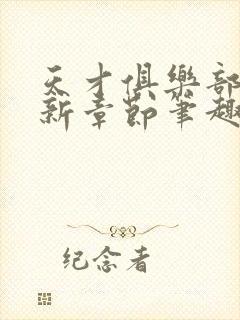 天才俱樂部
新章節筆趣
纪念者